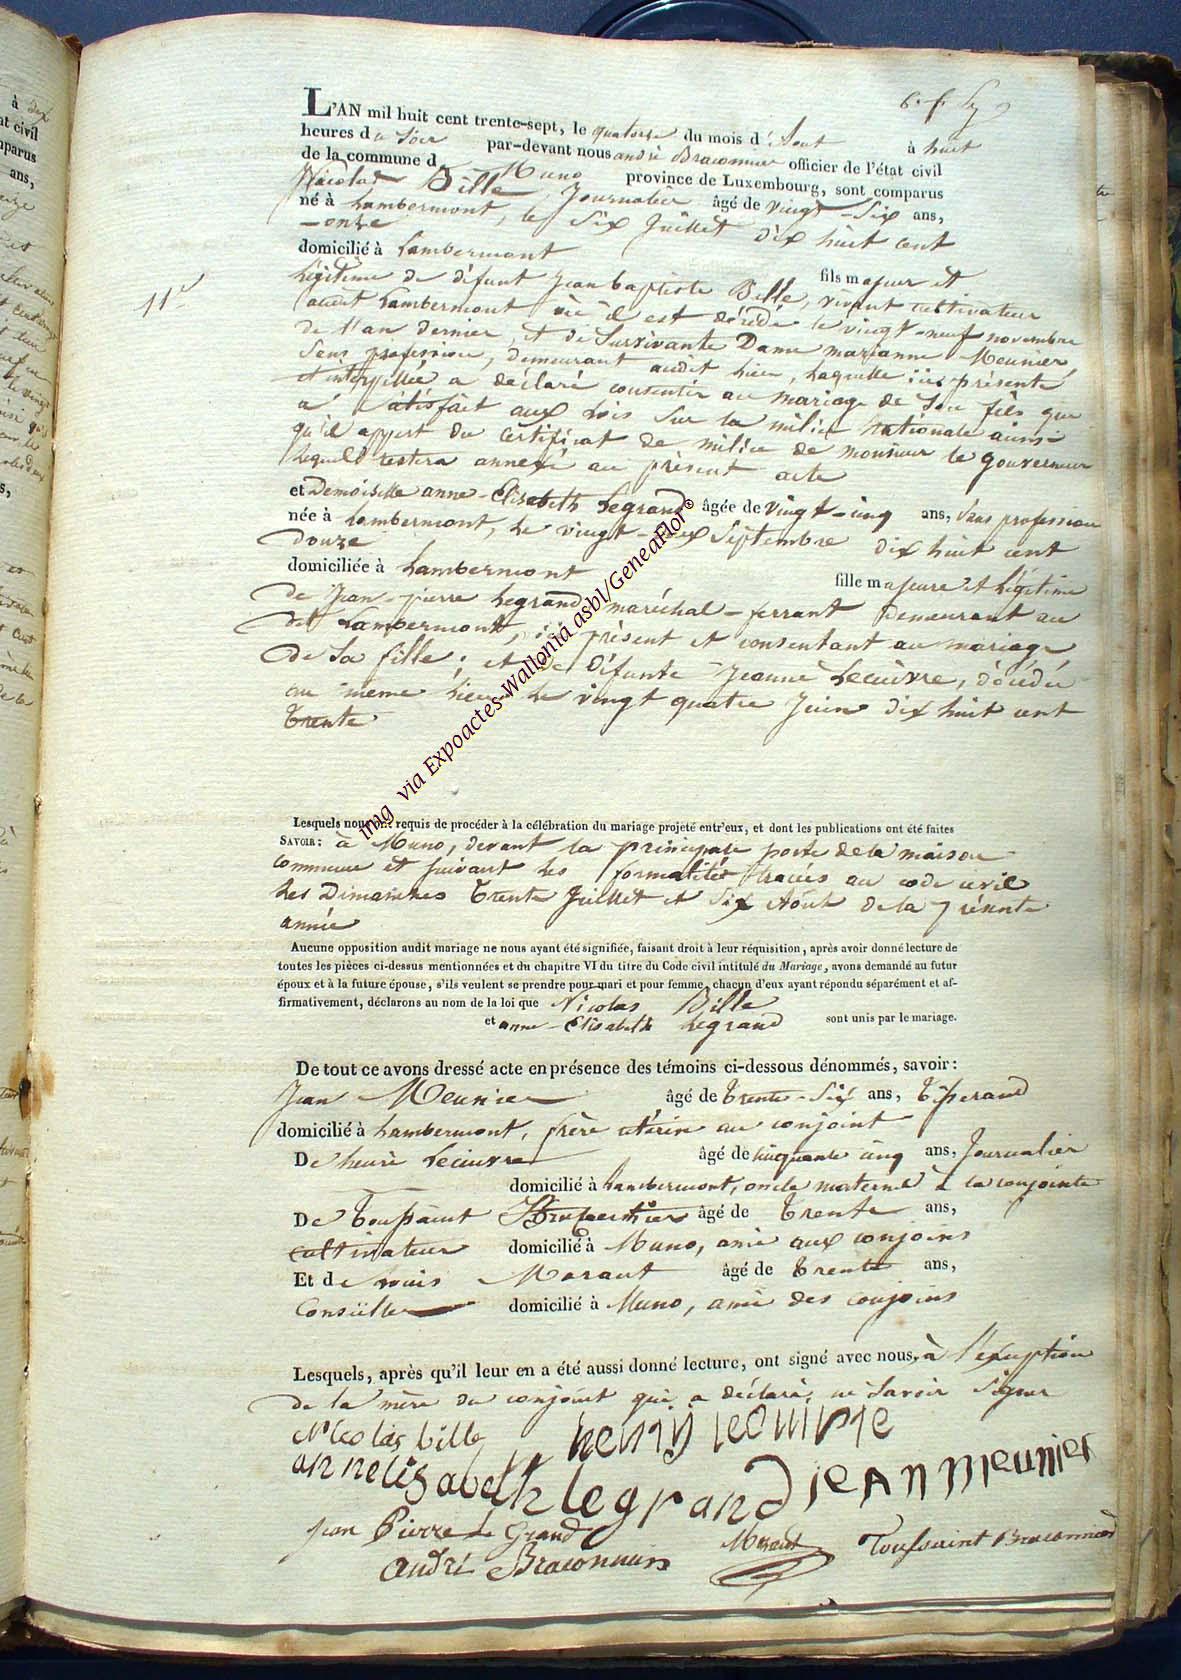 L'AN mil huit cent trente-sept, le quatorze du mois d'Aout à huit
heures du Soir par-devant nous andré Braconnier officier de l'état civil
de la commune d Muno province de Luxembourg, sont comparus
Nicolas Bille, Journalier âgé de vingt-Six ans,
né à Lambermont, le Six Juillet dix huit cent
-onze
domicilié à Lambermont fils majeur et
11e
Légitime de défunt Jean baptiste Bille, vivant cultivateur
audit Lambermont où il est décédé le vingt-neuf novembre
de l'an dernier, et de Survivante Dame marianne Meunier,
Sans profession, demeurant audit lieu, Laquelle ici présente
et interpellée a déclaré consentir au mariage de Son fils qui
a Satisfait aux Lois Sur la milice Nationale ainsi
qu'il appert du Certificat de milice de monsieur le gouverneur
Lequel restera annexé au présent acte
et Demoiselle anne-Elisabeth Legrand âgée de vingt-cinq ans, Sans profession
née à Lambermont, Le vingt-deux Septembre dix huit cent
Douze
domiciliée à Lambermont fille majeure et Légitime
De Jean-pierre Legrand maréchal-ferrant Demeurant au
dit Lambermont, ici présent et consentant au mariage
De Sa fille; et de Défunte Jeanne Lecuivre, décédée
au même lieu Le vingt quatre Juin dix huit cent
Trente
Lesquels nous ont requis de procéder à la célébration du mariage projeté entr'eux, et dont les publications ont été faites
SAVOIR: à Muno, devant la principale porte de la maison
Commune et suivant les formalités tracées au code civil
Les Dimanches Trente Juillet et Six Août de la présente
année
Aucune opposition audit mariage ne nous ayant été signifiée, faisant droit à leur réquisition, après avoir donné lecture de
toutes les pièces ci-dessus mentionnées et du chapitre VI du titre du Code civil intitulé du Mariage, avons demandé au futur
époux et à la future épouse, s'ils veulent se prendre pour mari et pour femme, chacun d'eux ayant répondu séparément et af-
firmativement, déclarons au nom de la loi que Nicolas Bille
et anne-Elisabeth Legrand sont unis par le mariage.
De tout ce avons dressé acte en présence des témoins ci-dessous dénommés, savoir:
Jean Meunier âgé de Trente-Six ans, Tisserand
domicilié à Lambermont, frère utérin au conjoint
De henri Lecuivre âgé de cinquante cinq ans, Journalier
domicilié à Lambermont, oncle maternel à la conjointe
De Toussaint Braconnier âgé de Trente ans,
Cultivateur domicilié à Muno, ami aux conjoins
Et de Louis Maraut âgé de Trente ans,
Conseiller domicilié à Muno, ami des conjoins
Lesquels, après qu'il leur en a été aussi donné lecture, ont signé avec nous, à l'exeption
de la mère du conjoint qui a déclaré ne Savoir Signer
Nicolas bille henry lecuivre
annelisabeth legrand jEAN MEunier
Jean Pierre Le Grand Maraut Toussaint Braconnier
André Braconnier
img via Expoactes-Wallonia asbl/GeneaFlor©